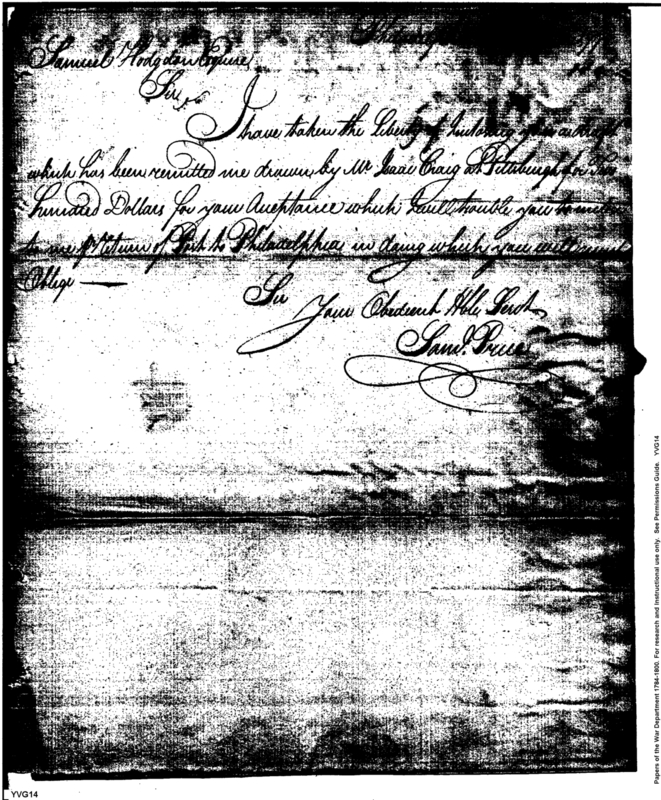 Samuel Hodgdon Esquire
Sir
I have taken the Liberty of Inclosing you a draft
which has been remitted me drawn by Mr Isaac Craig at Pittsburgh for Two
hundred Dollars for your Acceptance which I will trouble you to
to me Return of Post to Philadelphia in doing which you will much
Oblige —
Sir
Your Obedient Hble Servt
Saml.
Papers of the War Department 1784-1800. For research and instructional use only. See Permissions Guide. YVG14
YVG14